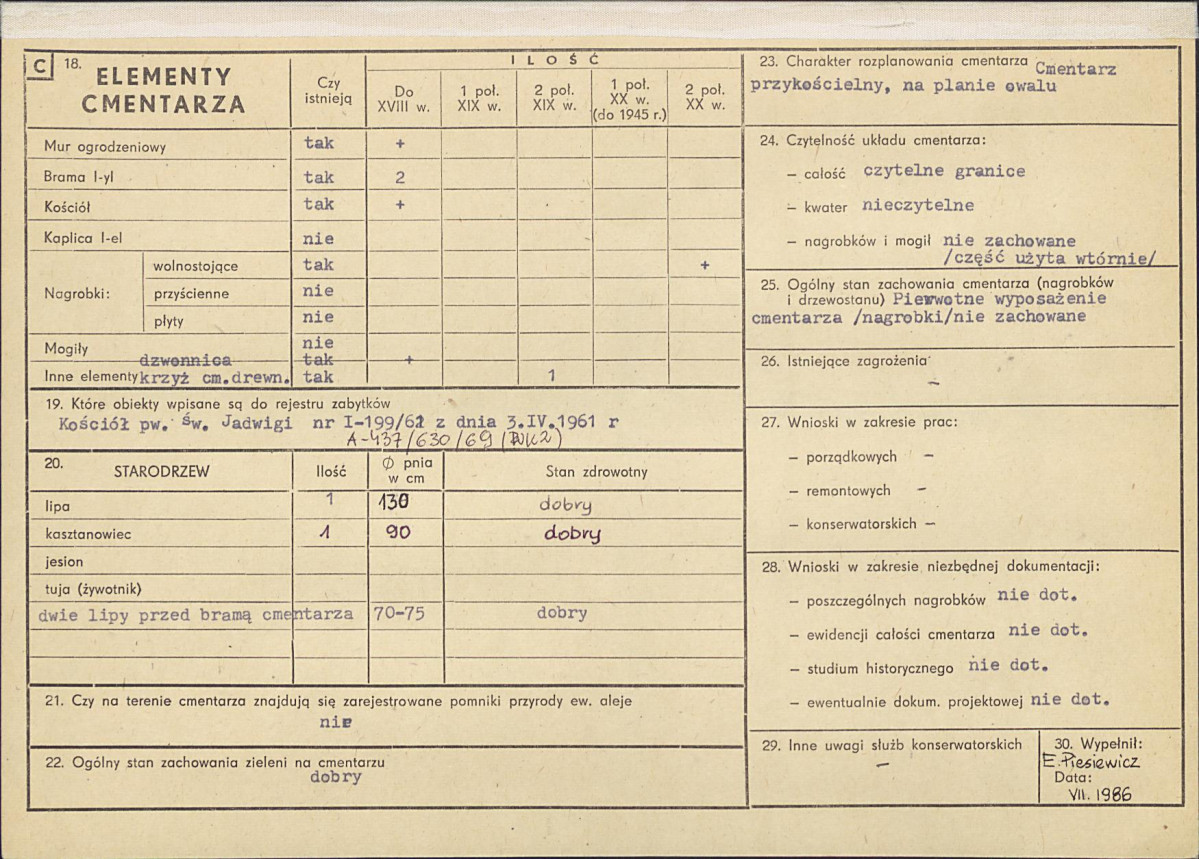 C 18. ELEMENTY CMENTARZA
Czy istnieją
I L O Ś Ć
Do XVIII w.
1 poł. XIX w.
2 poł. XIX w.
1 poł. XX w. (do 1945 r.)
2 poł. XX w.
Mur ogrodzeniowy tak +
Brama l-yl tak 2
Kościół tak +
Kaplica l-el nie
Nagrobki: wolnostojące tak +
przyścienne nie
płyty nie
Mogiły nie
dzwonnica tak +
Inne elementy krzyż cm.drewn. tak 1
19. Które obiekty wpisane są do rejestru zabytków
Kościół pw. św. Jadwigi nr I-199/61 z dnia 3.IV.1961 r
A-437/630/69
20. STARODRZEW Ilość Ø pnia w cm Stan zdrowotny
lipa 1 130 dobry
kasztanowiec 1 90 dobry
jesion
tuja (żywotnik)
dwie lipy przed bramą cmentarza 70-75 dobry
21. Czy na terenie cmentarza znajdują się zarejestrowane pomniki przyrody ew. aleje
nie
22. Ogólny stan zachowania zieleni na cmentarzu
dobry
23. Charakter rozplanowania cmentarza Cmentarz
przykościelny, na planie owalu
24. Czytelność układu cmentarza:
— całość czytelne granice
— kwater nieczytelne
— nagrobków i mogił nie zachowane
/część użyta wtórnie/
25. Ogólny stan zachowania cmentarza (nagrobków
i drzewostanu) Pierwotne wyposażenie
cmentarza /nagrobki/nie zachowane
26. Istniejące zagrożenia
—
27. Wnioski w zakresie prac:
— porządkowych —
— remontowych —
— konserwatorskich —
28. Wnioski w zakresie niezbędnej dokumentacji:
— poszczególnych nagrobków nie dot.
— ewidencji całości cmentarza nie dot.
— studium historycznego nie dot.
— ewentualnie dokum. projektowej nie dot.
29. Inne uwagi służb konserwatorskich
—
30. Wypełnił:
E. Piesiewicz
Data:
VII. 1986